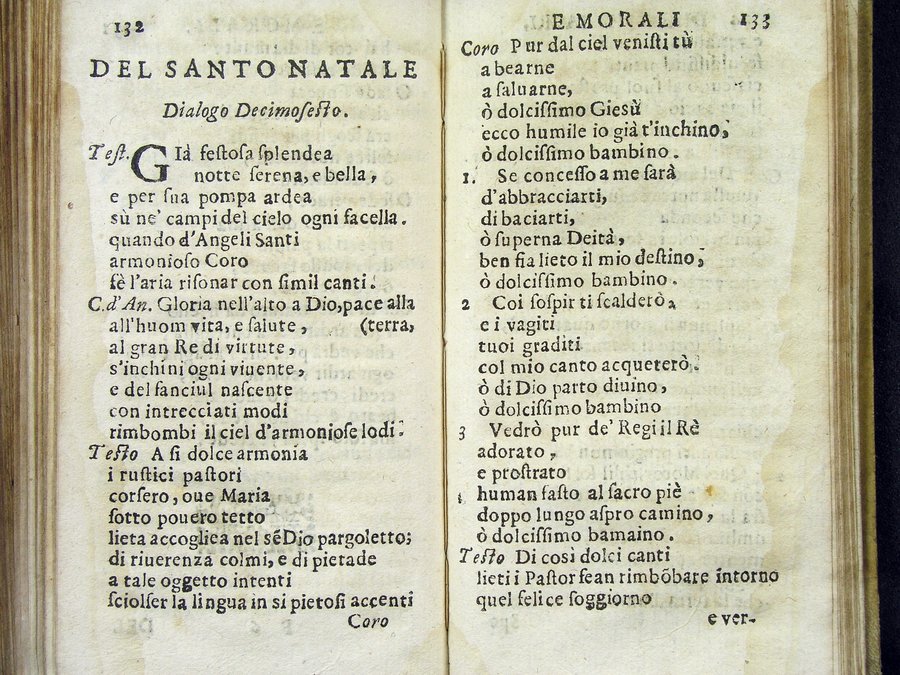 132
DEL SANTO NATALE
Dialogo Decimosesto.
Test. GIà festosa splendea
notte serena, e bella,
e per sua pompa ardea
sù ne' campi del cielo ogni facella.
quando d'Angeli Santi
armonioso Coro
fè l'aria risonar con simil canti.
C.d'An. Gloria nell'alto a Dio, pace alla
all'huom vita, e salute, (terra,
al gran Re di virtute,
s'inchini ogni viuente,
e del fanciul nascente
con intrecciati modi
rimbombi il ciel d'armoniose lodi.
Testo A sì dolce armonia
i rustici pastori
corsero, oue Maria
sotto pouero tetto
lieta accogliea nel sẽ Dio pargoletto;
di riuerenza colmi, e di pietade
a tale oggetto intenti
sciolser la lingua in si pietosi accenti
Coro
E MORALI 133
Coro Pur dal ciel venisti tù
a bearne
a saluarne,
ò dolcissimo Giesù
ecco humile io già t'inchino,
ò dolcissimo bambino.
1. Se concesso a me sarà
d'abbracciarti,
di baciarti,
ò superna Deità,
ben fia lieto il mio destino,
ò dolcissimo bambino.
2 Coi sospir ti scalderò,
e i vagiti
tuoi graditi
col mio canto acqueterò.
ò di Dio parto diuino,
ò dolcissimo bambino
3 Vedrò pur de' Regi il Rè
adorato,
e prostrato
human fasto al sacro piè
doppo lungo aspro camino,
ò dolcissimo bamaino.
Testo Di così dolci canti
lieti i Pastor fean rimbõbare intorno
quel felice soggiorno
e ver-